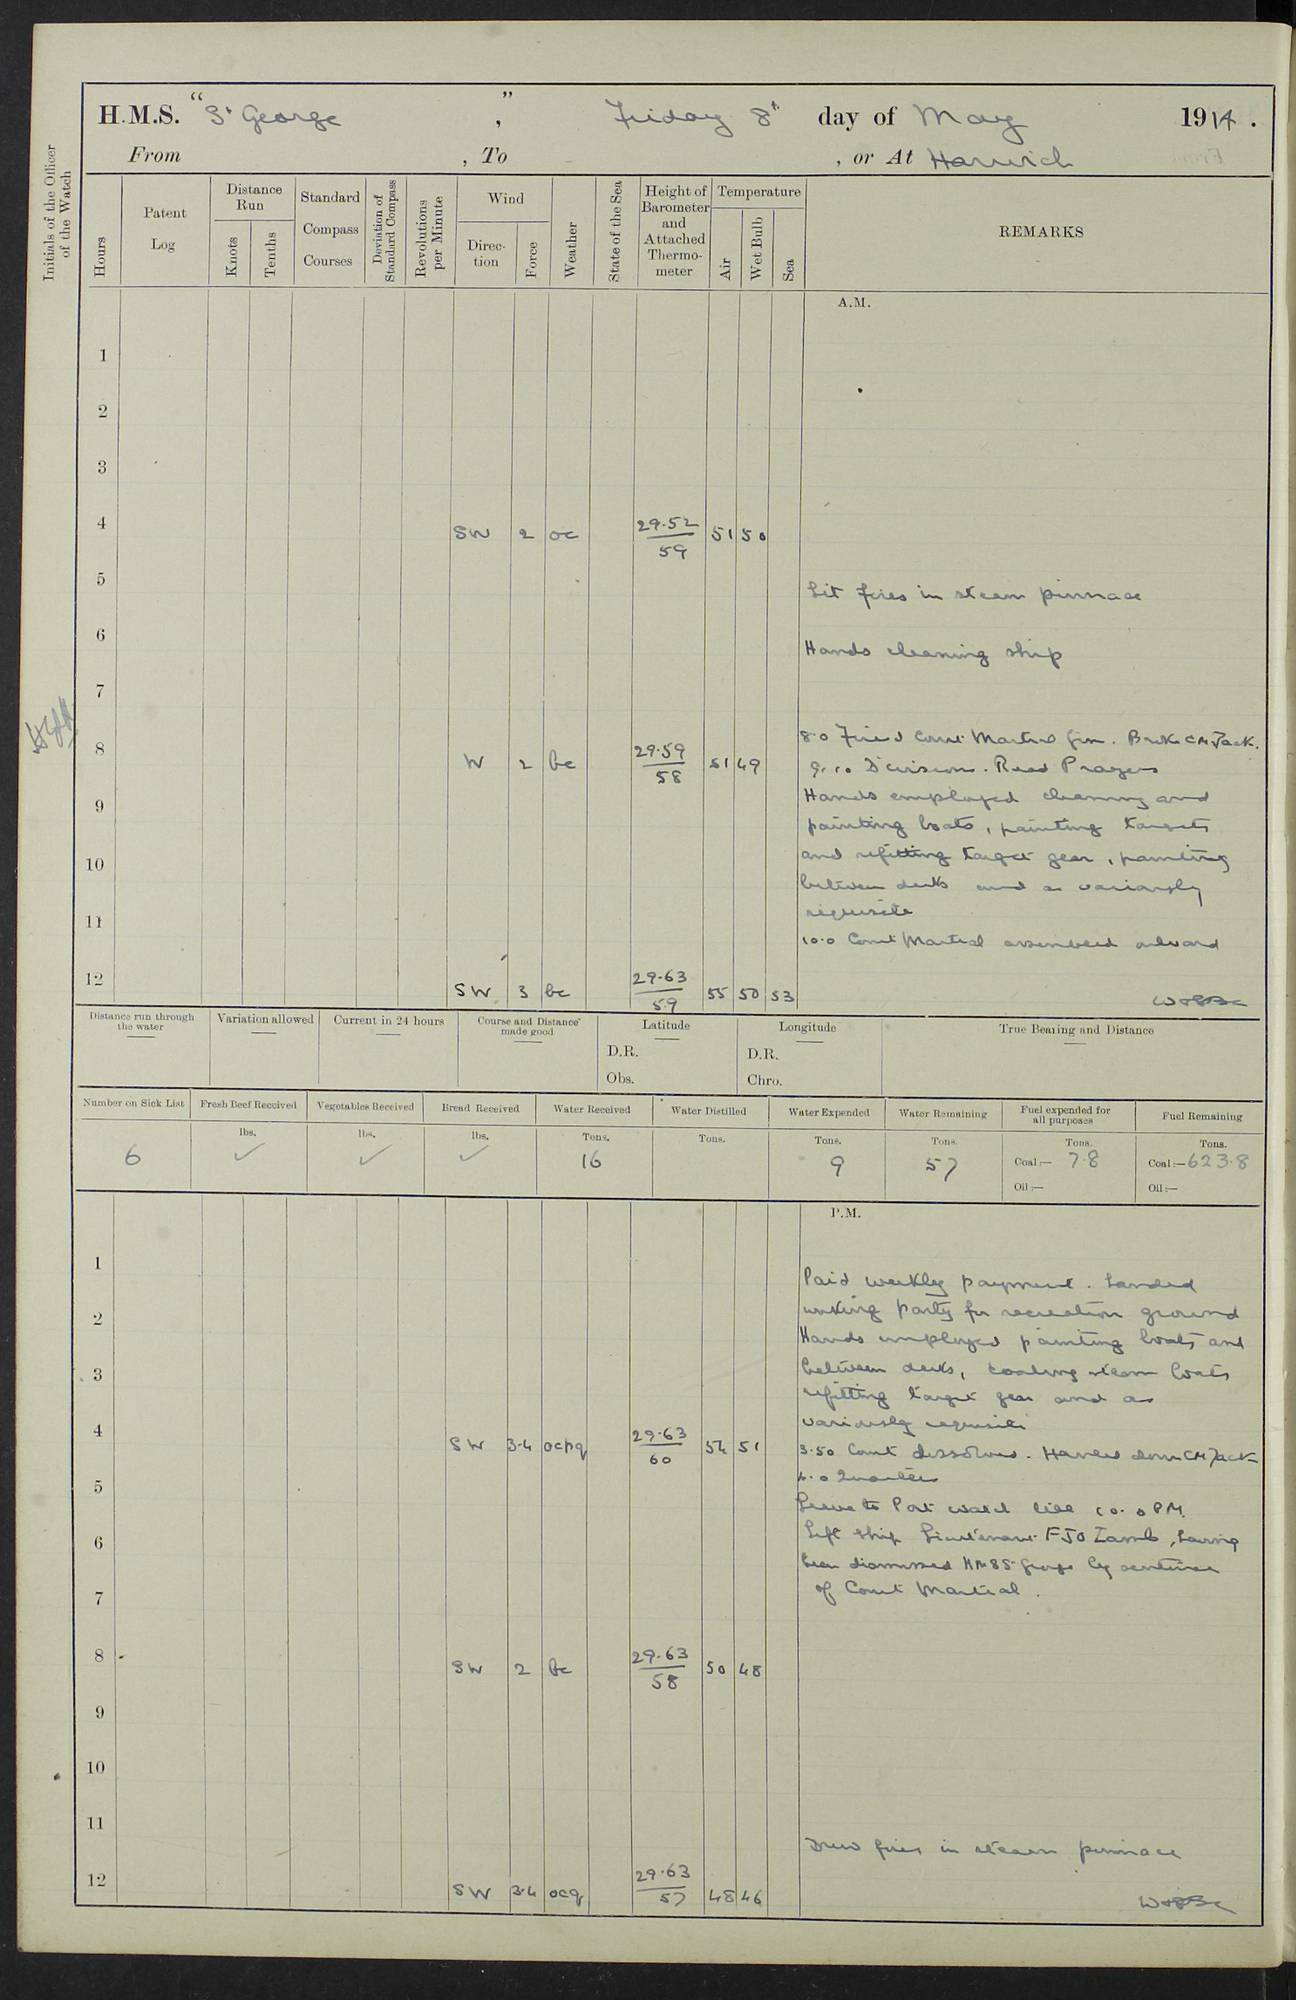 H.M.S. "St George", Friday 8th day of May 1914.
From , To , or At Harwich
Initials of the Officer of the Watch
Hours
Patent Log
Distance Run
Knots
Tenths
Standard Compass Courses
Deviation of Standard Compass
Revolutions per Minute
Wind
Direction
Force
Weather
State of the Sea
Height of Barometer and Attached Thermometer
Temperature
Air
Wet Bulb
Sea
REMARKS
A.M.
1
2
3
4 SW 2 oc 29.52 59 51 50
5
Lit fires in steam pinnace
6
Hands cleaning ship
7
8 W 2 bc 29.59 58 51 49
8.0 Fired Court Martial Gun. Broke CM Jack.
9.10 Divisions. Read Prayers
9
Hands employed cleaning and
painting boats, painting targets
10
and refitting target gear, painting
between decks and as variously
11
requisite
10.0 Court Martial assembled onboard
12 SW 3 bc 29.63 59 55 50 53
Distance run through the water
Variation allowed
Current in 24 hours
Course and Distance made good
Latitude
D.R.
Obs.
Longitude
D.R.
Chro.
True Bearing and Distance
Number on Sick List
Fresh Beef Received
Vegetables Received
Bread Received
Water Received
Water Distilled
Water Expended
Water Remaining
Fuel expended for all purposes
Fuel Remaining
6
lbs. ✓
lbs. ✓
lbs. ✓
Tons. 16
Tons.
Tons. 9
Tons. 57
Tons. Coal:— 7.8
Oil:—
Tons. Coal:— 623.8
Oil:—
P.M.
1
Paid weekly payment. Landed
2
working party for recreation ground
Hands employed painting boats and
3
between decks, coaling steam boats
refitting target gear and as
variously requisite
4 SW 3.4 ocpq 29.63 60 54 51
3.50 Court dissolved. Hauled down CM Jack
5
Quarters
Leave to Port watch till 10.0 PM.
6
Left ship Lieutenant FJO Lamb, having
been dismissed HMS St George by sentence
7
of Court Martial.
8 SW 2 bc 29.63 58 50 48
9
10
11
Drew fires in steam pinnace
12 SW 3.4 ocq 29.63 57 48 46